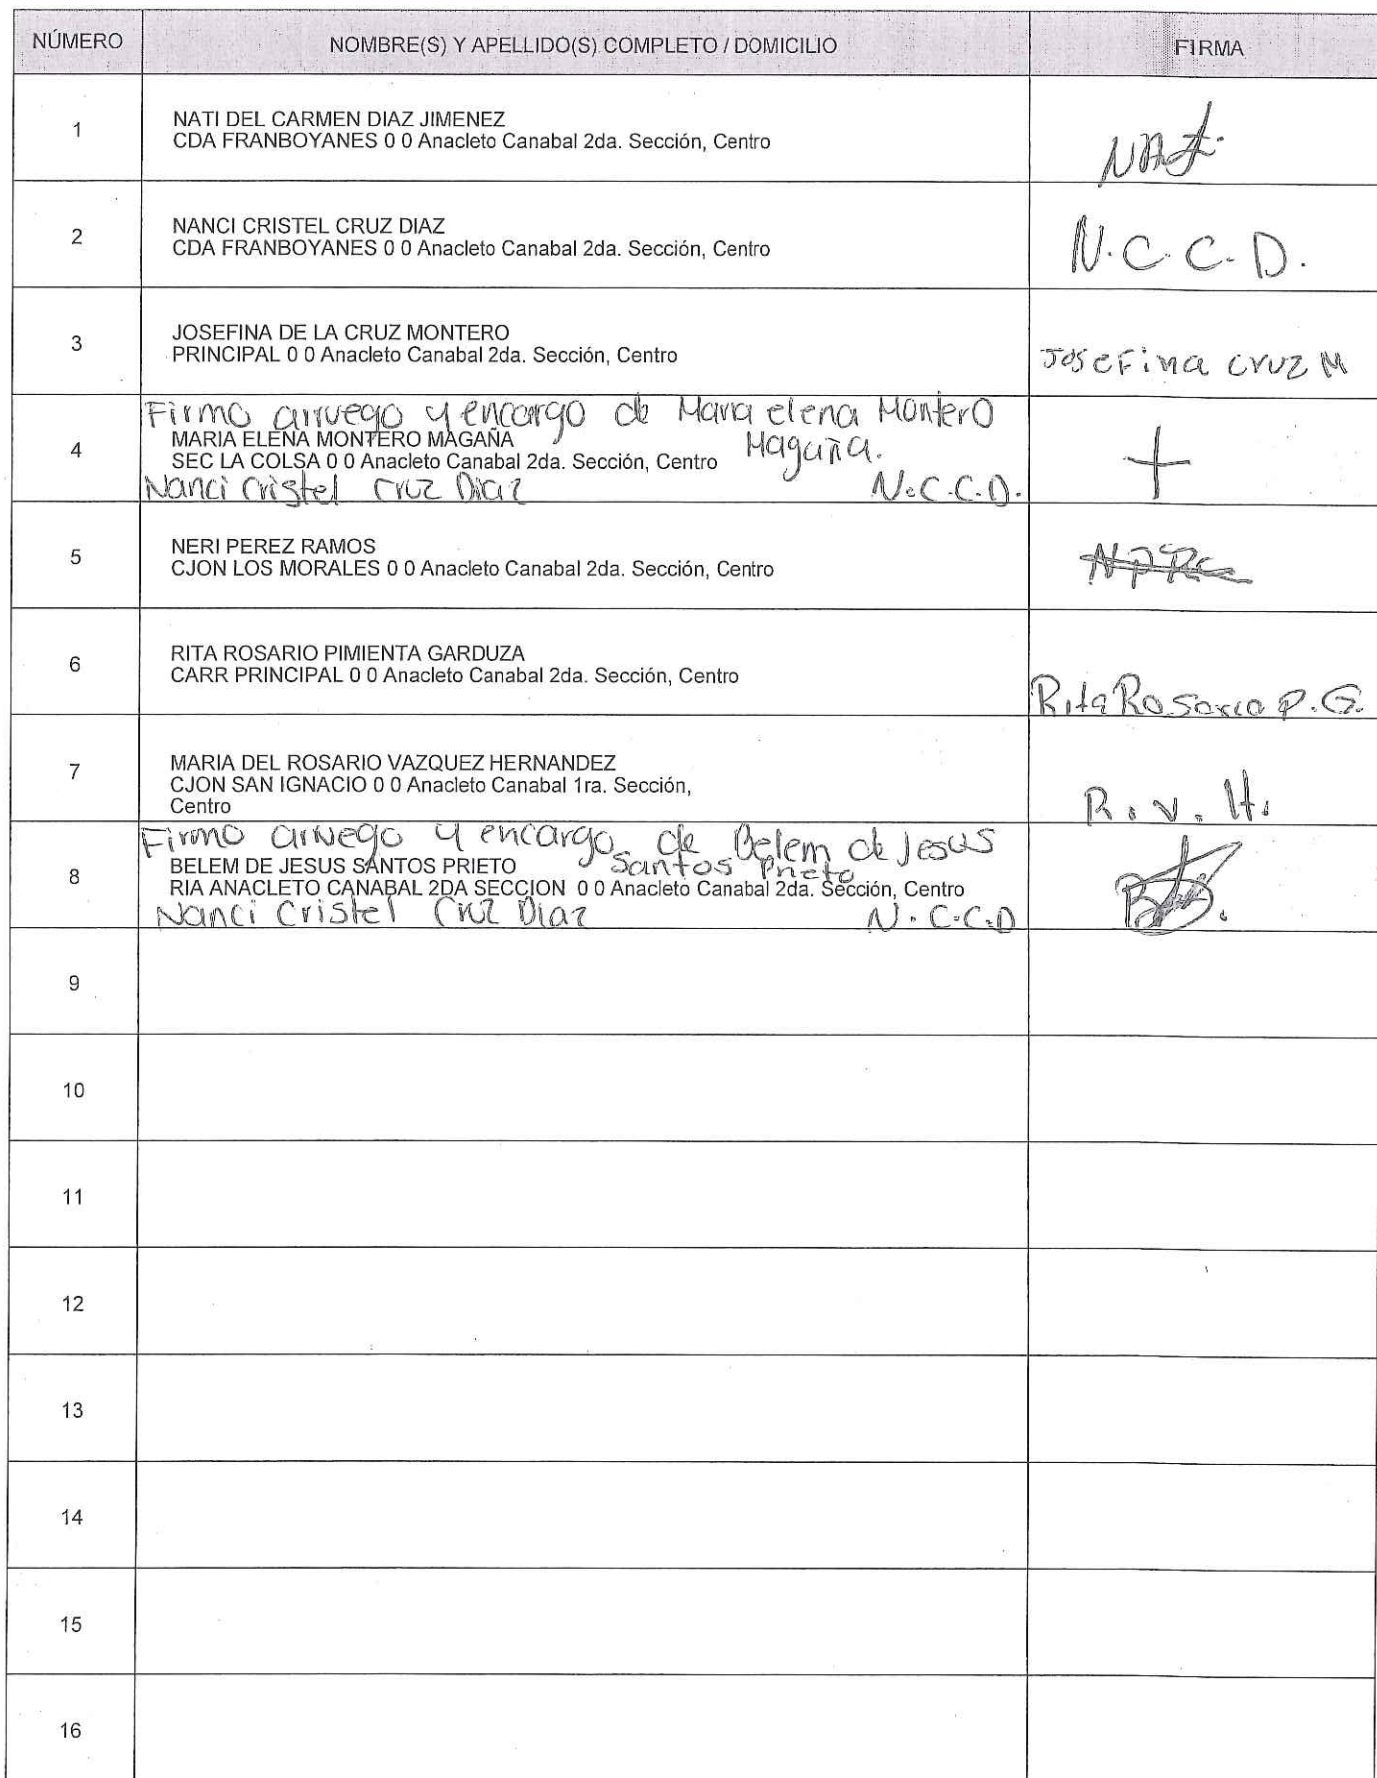 NÚMERO NOMBRE(S) Y APELLIDO(S) COMPLETO / DOMICILIO FIRMA
1 NATI DEL CARMEN DIAZ JIMENEZ
CDA FRANBOYANES 0 0 Anacleto Canabal 2da. Sección, Centro
2 NANCI CRISTEL CRUZ DIAZ
CDA FRANBOYANES 0 0 Anacleto Canabal 2da. Sección, Centro
N.C.C.D.
3 JOSEFINA DE LA CRUZ MONTERO
PRINCIPAL 0 0 Anacleto Canabal 2da. Sección, Centro
Josefina cruz M
Firmo arruego y encargo de Maria elena Montero
4 MARIA ELENA MONTERO MAGAÑA Magaña.
SEC LA COLSA 0 0 Anacleto Canabal 2da. Sección, Centro
Nanci Cristel Cruz Diaz N.C.C.D.
5 NERI PEREZ RAMOS
CJON LOS MORALES 0 0 Anacleto Canabal 2da. Sección, Centro
6 RITA ROSARIO PIMIENTA GARDUZA
CARR PRINCIPAL 0 0 Anacleto Canabal 2da. Sección, Centro
Rita Rosario P.G.
7 MARIA DEL ROSARIO VAZQUEZ HERNANDEZ
CJON SAN IGNACIO 0 0 Anacleto Canabal 1ra. Sección,
Centro
R.V.H.
Firmo arruego y encargo de Belem de Jesus
8 BELEM DE JESUS SANTOS PRIETO Santos Prieto
RIA ANACLETO CANABAL 2DA SECCION 0 0 Anacleto Canabal 2da. Sección, Centro
Nanci Cristel Cruz Diaz N.C.C.D
9
10
11
12
13
14
15
16